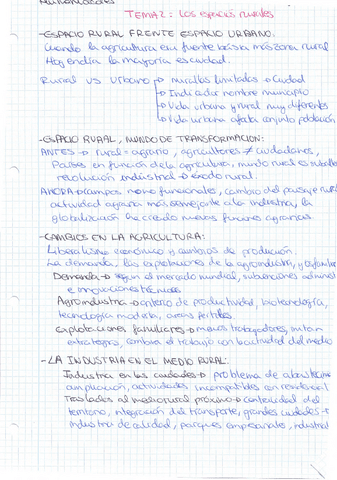 TEMA 2: Los espacios rurales
-ESPACIO RURAL FRENTE ESPACIO URBANO:
Cuando la agricultura era fuente básica más zona rural
Hoy en día la mayoría es ciudad.
Rural VS Urbano → murallas limitados → Ciudad
→ Indicador nombre municipio
→ Vida urbana y rural muy diferentes
→ Vida urbana afecta conjunto población
-ESPACIO RURAL, MUNDO DE TRANSFORMACION:
ANTES → rural = agrario, agricultores ≠ ciudadanos,
Países en función de la agricultura, mundo rural es
revolución industrial → éxodo rural.
AHORA → campos mono funcionales, cambio del paisaje
actividad agraria más semejante a la industria, la
globalización ha creado nuevas funciones agrarias.
-CAMBIOS EN LA AGRICULTURA:
Liberalismo económico y cambios de producción,
La demanda, las explotaciones de la agroindustria, y
Demanda → según el mercado mundial, subvenciones
e innovaciones técnicas
Agroindustria → criterio de productividad, biotecnología,
tecnología moderna, áreas fértiles.
Explotaciones familiares → menos trabajadores, imitan
estrategias, combina el trabajo con la actividad del medio
-LA INDUSTRIA EN EL MEDIO RURAL:
Industria en las ciudades → problema de
ampliación, actividades incompatibles con residencial
Traslados al medio rural próximo → continuidad del
territorio, integración del transporte, grandes ciudades →
industria de calidad, parques empresariales, industrial